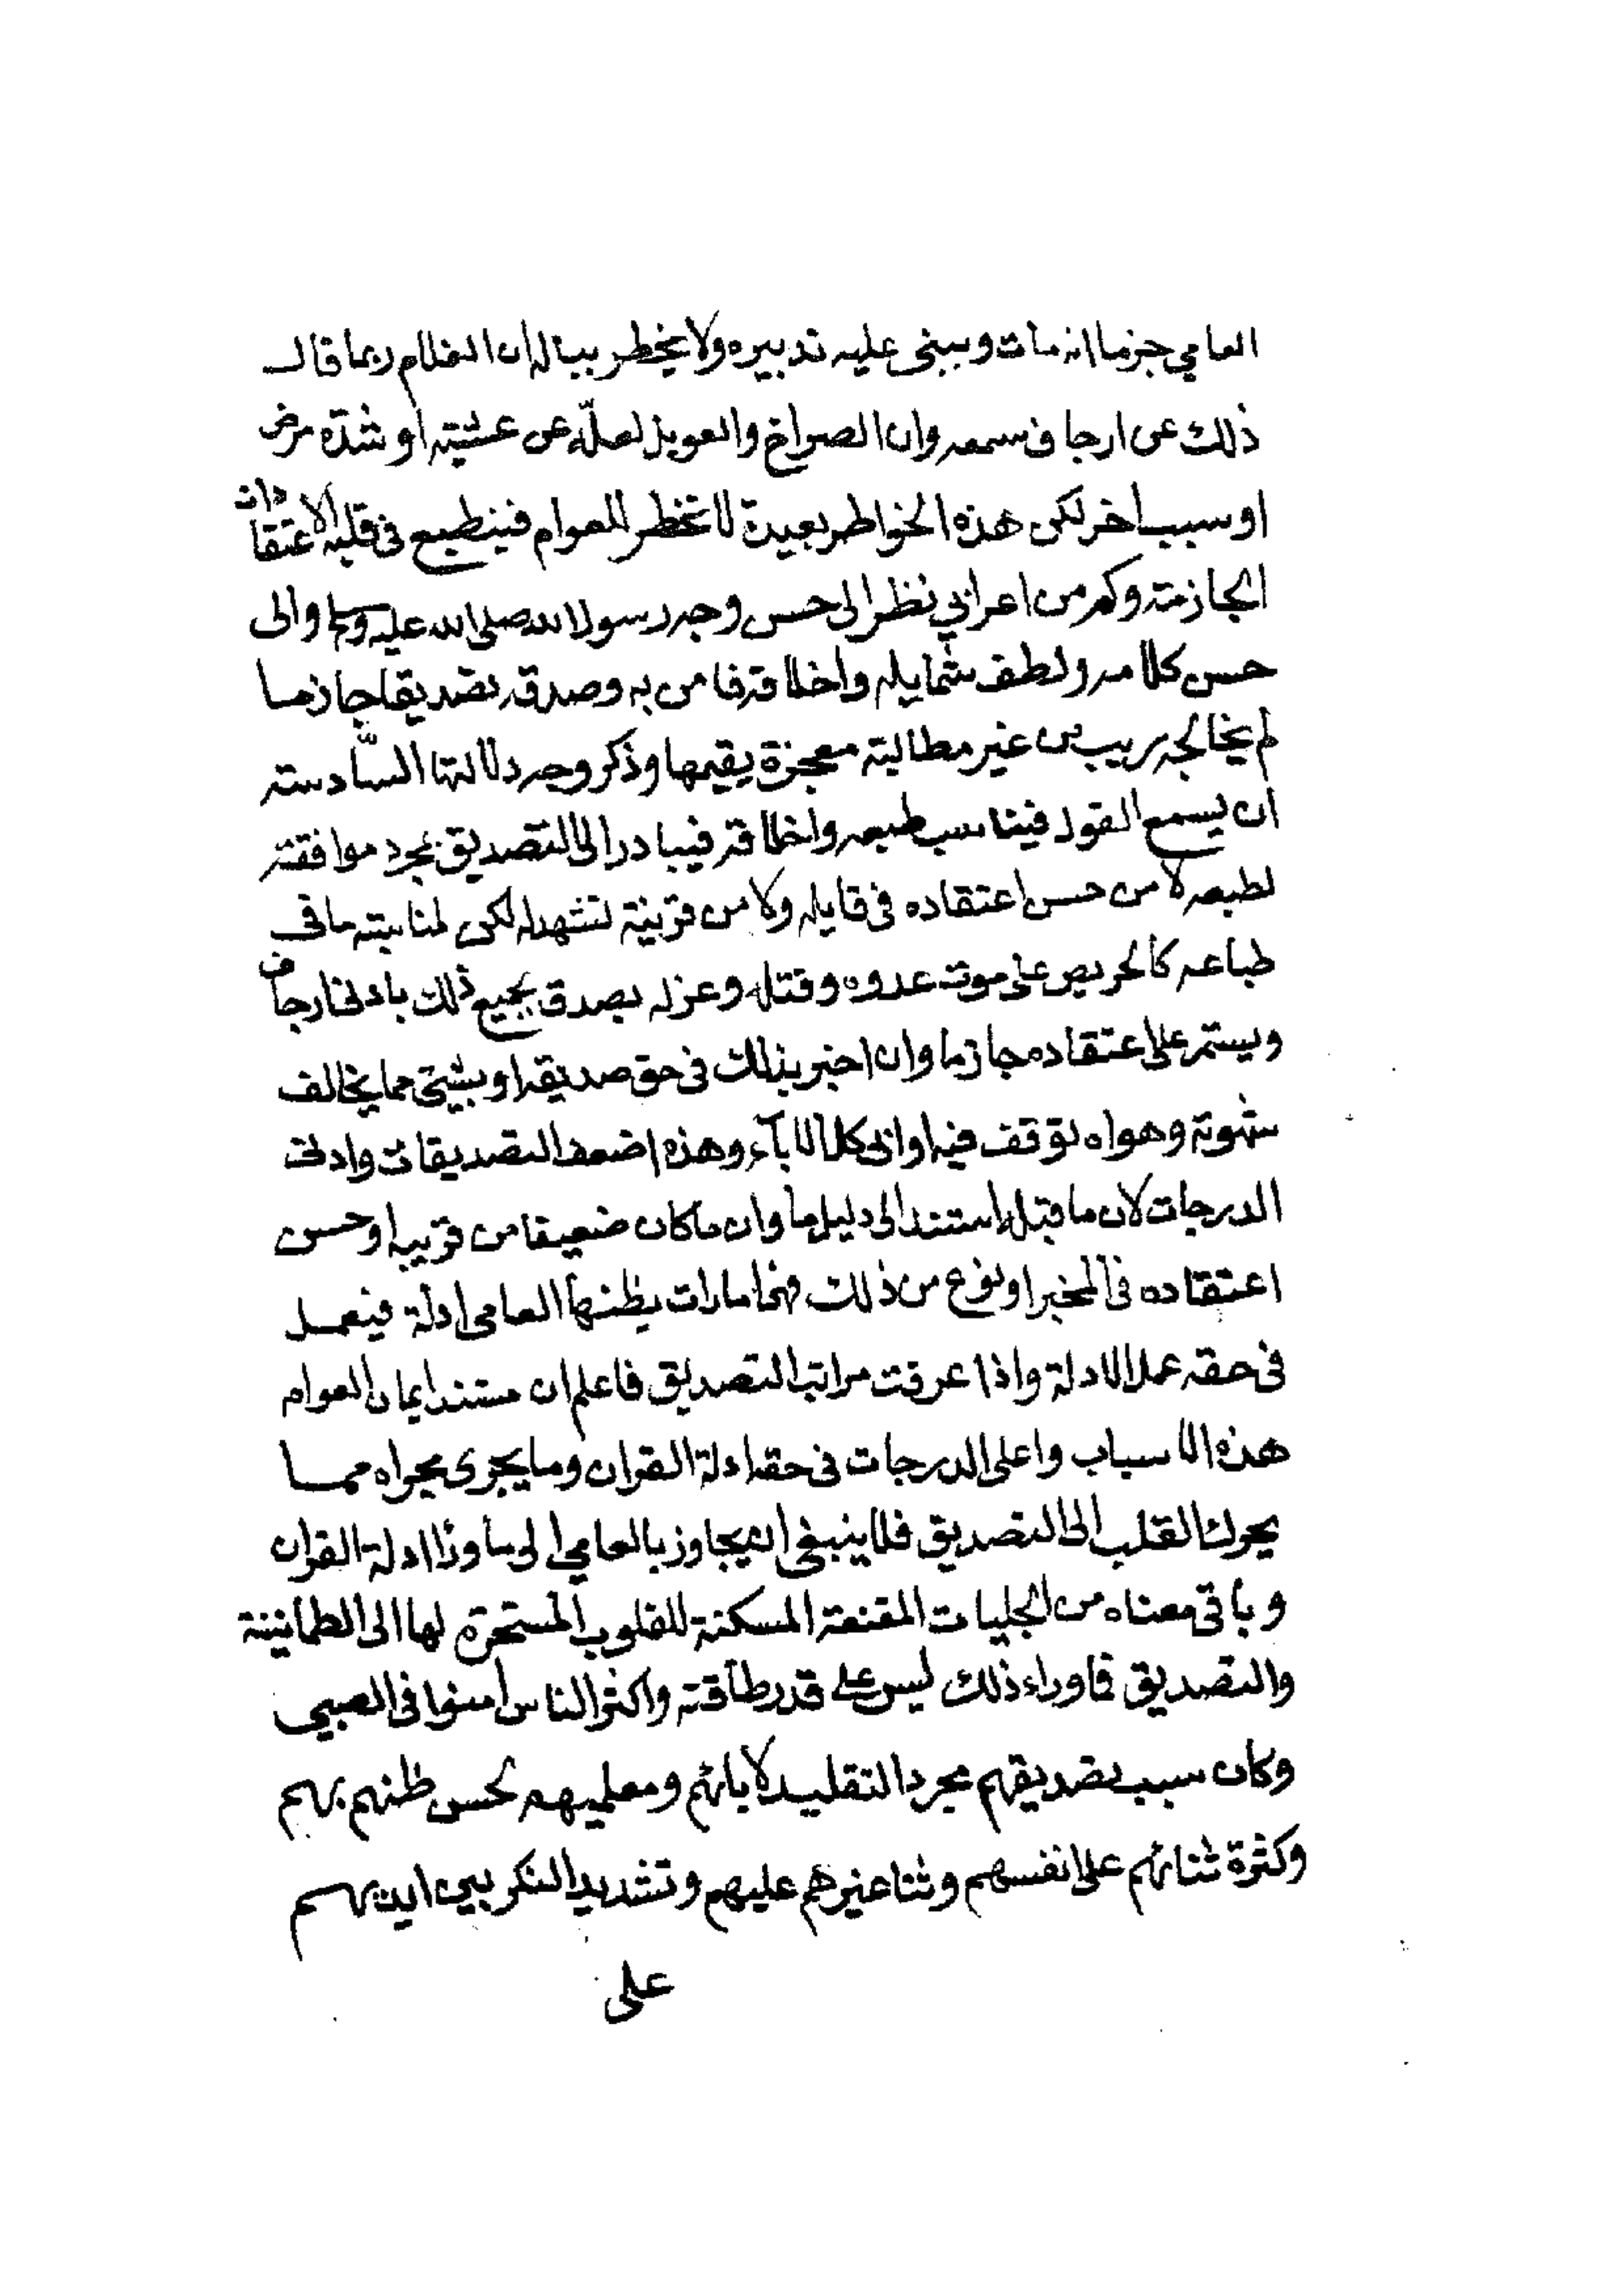 العامي جزما انه مات ويبني عليه تدبيره ولا يخطر بباله ان الغلام ربما قال
ذلك عن ارجاف سمعه وان الصراخ والعويل لعلّه عن غشيته او شدّة مرض
او سبب اخر لكن هذه الخواطر بعيدة لا تخطر للعوام فينطبع في قلبه الاعتقادات
الجازمة وكم من اعرابي نظر الى حسن وجه رسول الله صلى الله عليه وسلم والى
حسن كلامه ولطف شمايله واخلاقه فامن به وصدقه تصديقا جازما
لم يخالجه ريب من غير مطالبة معجزة يقيمها وذكر وجه دلالتها السّادسة
ان يسمع القول فيناسب طبعه واخلاقه فيبادر الى التصديق بمجرد موافقته
لطبعه لا من حسن اعتقاده في قايله ولا من قرينة تشهد له لكن لمناسبته ما في
طباعه كالحريص على موت عدوه وقتله وعزله يصدق بجميع ذلك بادنى ارجاف
ويستمر على اعتقاده جازما وان اخبر بذلك في حق صديقه او بشيئ مما يخالف
شهوته وهواه توقف فيه او ابى كل الاباء وهذه اضعف التصديقات وادنى
الدرجات لان ما قبله استند الى دليل ما وان ما كان ضعيفا من قرينه او حسن
اعتقاده في المخبر او نوع من ذلك فهي امارات يظنها العامي ادلة فيعمل
في حقه عمل الادلة واذا عرفت مراتب التصديق فاعلم ان مستند ايمان العوام
هذه الاسباب واعلى الدرجات في حقه ادلة القران وما يجرى مجراه مما
يحرك القلب الى التصديق فلا ينبغي ان يجاوز بالعامي الى ما وراء ادلة القران
وباقي معناه من الجليات المقنعة المسكنة للقلوب المستجرة لها الى الطمانينة
والتصديق فما وراء ذلك ليس على قدر طاقته واكثر الناس امنوا في الصبي
وكان سبب تصديقهم مجرد التقليد لابائهم ومعلميهم لحسن ظنهم بهم
وكثرة ثنائهم على انفسهم وثنا غيرهم عليهم وتشديد النكر بين ايديهم
على